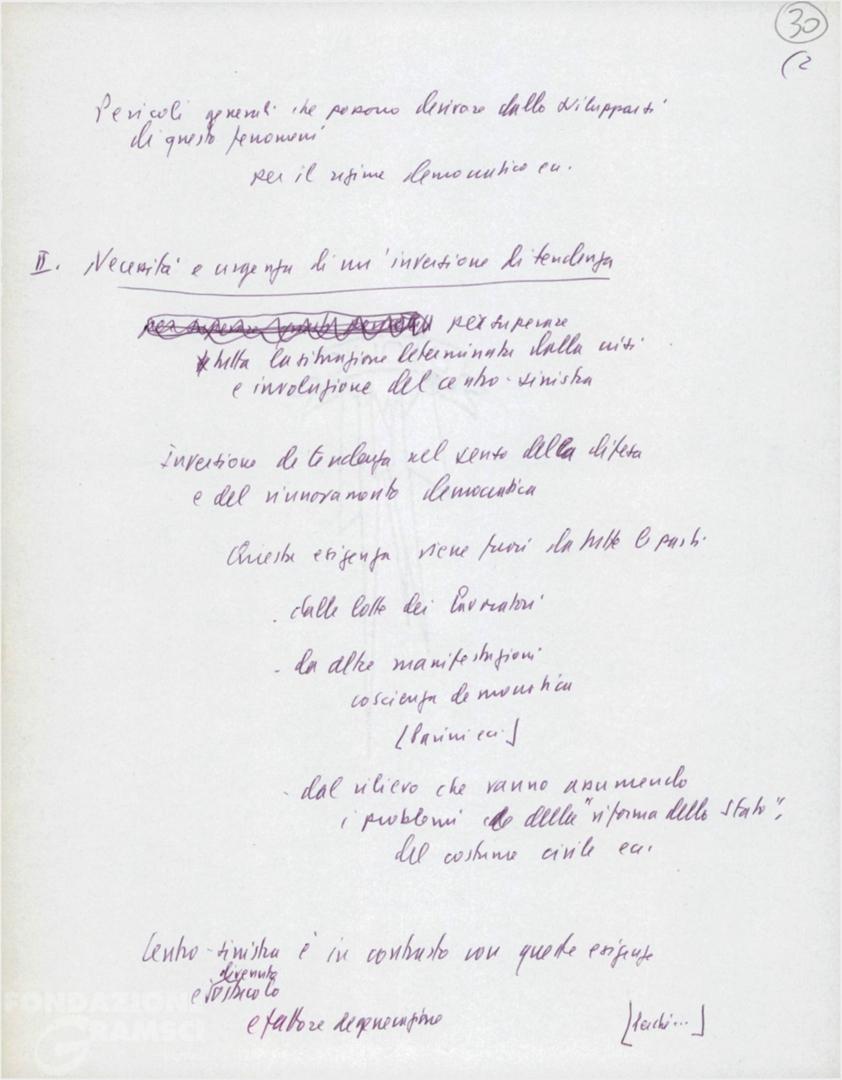 30
(2
Pericoli generali che possono derivare dallo svilupparsi
di questo fenomeni
per il regime democratico ecc.
II. Necessità e urgenza di un'inversione di tendenza
per superare
tutta la situazione determinata dalla crisi
e involuzione del centro-sinistra
Inversione di tendenza nel senso della difesa
e del rinnovamento democratica
Questa esigenza viene fuori da tutte le parti.
. dalle lotte dei lavoratori
- da altre manifestazioni
coscienza democratica
[Parini ecc.]
- dal rilievo che vanno assumendo
i problemi della "riforma dello Stato",
del costume civile ecc.
Centro-sinistra è in contrasto con queste esigenze
divenuto
e ostacolo
e fattore degenerazione [Perché...]
FONDAZIONE
GRAMSCI